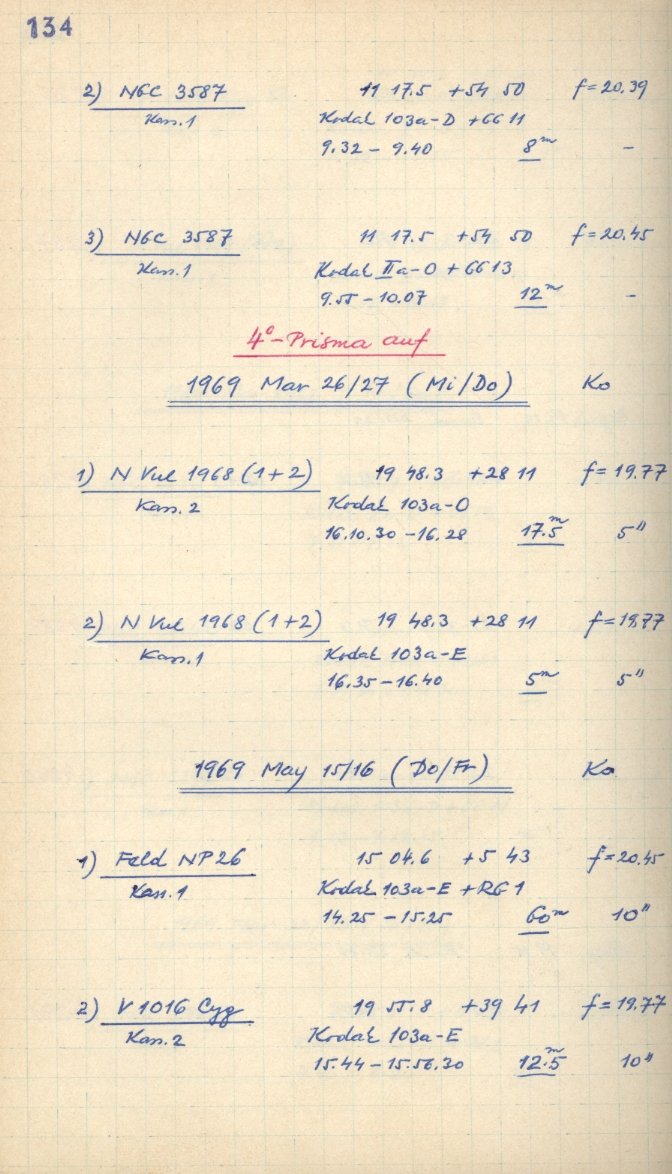 134
2) NGC 3587 11 17.5 +54 50 f=20.39
Kass. 1 Kodak 103a-D +GG 11
9.32 - 9.40 8m -
3) NGC 3587 11 17.5 +54 50 f=20.45
Kass. 1 Kodak IIa-O + GG 13
9.55 - 10.07 12m -
4°-Prisma auf
1969 Mar 26/27 (Mi/Do) Ko
1) N Vul 1968 (1+2) 19 48.3 +28 11 f=19.77
Kass. 2 Kodak 103a-O
16.10.30 - 16.28 17.5m 5"
2) N Vul 1968 (1+2) 19 48.3 +28 11 f=19.77
Kass. 1 Kodak 103a-E
16.35 - 16.40 5m 5"
1969 May 15/16 (Do/Fr) Ko
1) Feld NP 26 15 04.6 +5 43 f=20.45
Kass. 1 Kodak 103a-E +RG 1
14.25 - 15.25 60m 10"
2) V 1016 Cyg 19 55.8 +39 41 f=19.77
Kass. 2 Kodak 103a-E
15.44 - 15.56.30 12.5m 10"